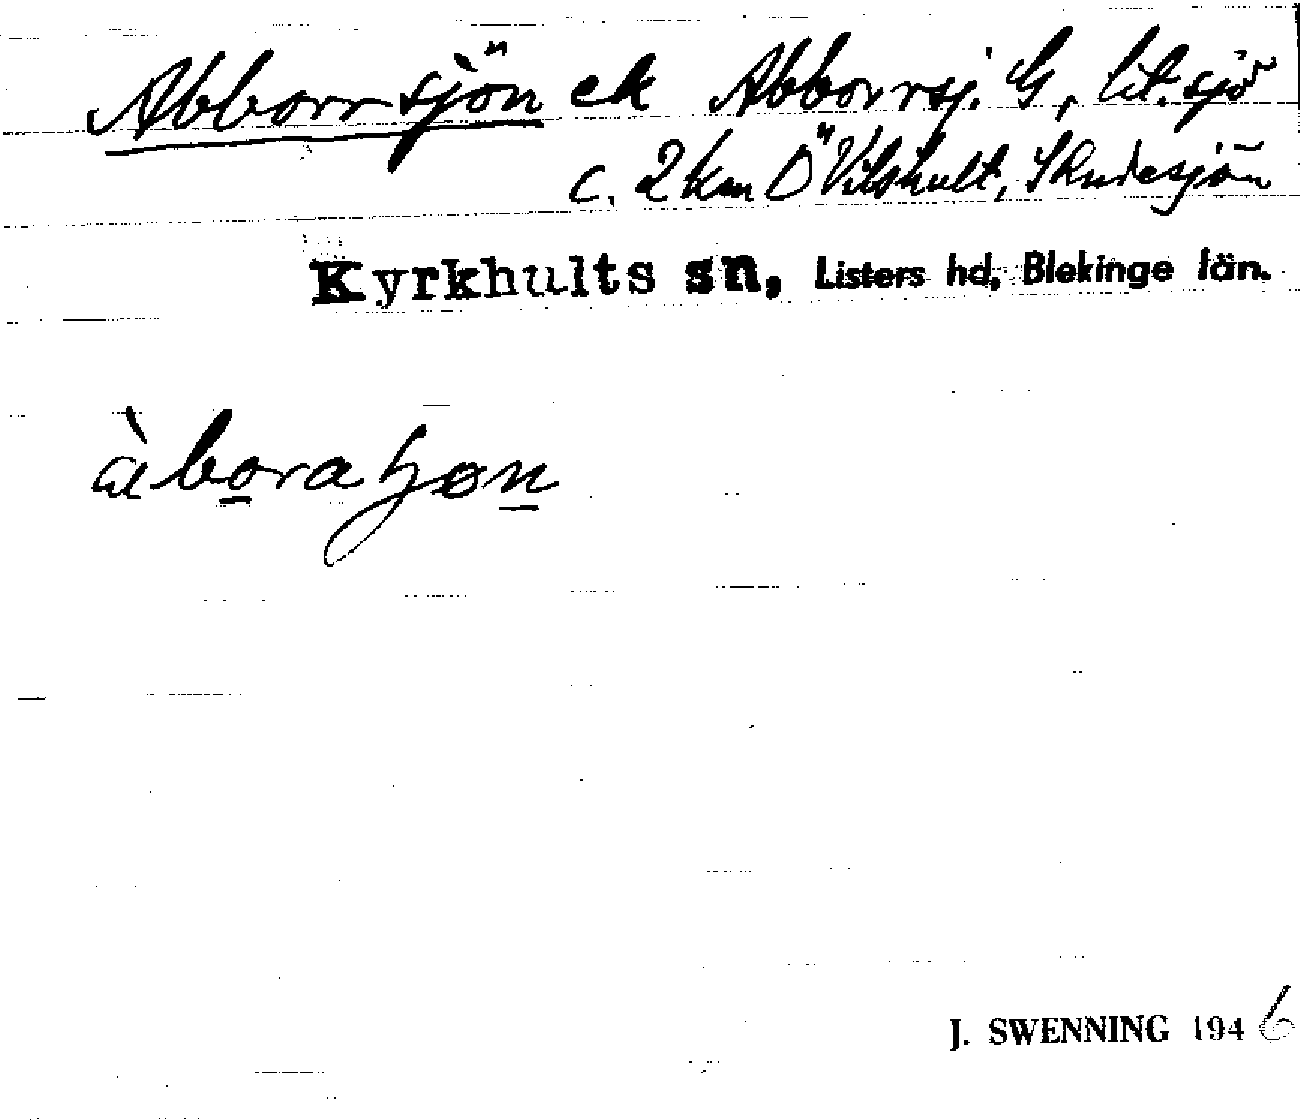 Abborrsjön ek Abborrsj. G, lit. sjö
c. 2 km Ö Vilshult,
Kyrkhults sn, Listers hd, Blekinge län.
J. SWENNING 1946